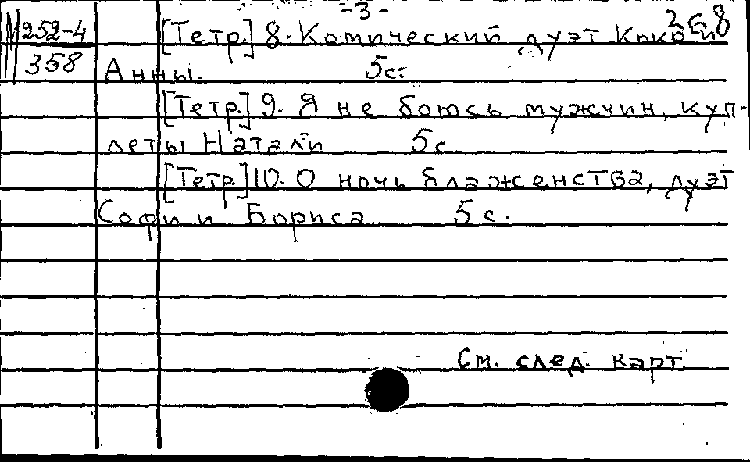 -3-
М 252-4
358
268
[Тетр.] 8. Комический дуэт Коко и
Анны. 5с.
[Тетр.] 9. Я не боюсь мужчин, куп-
леты Натали 5с
[Тетр.] 10. О ночь блаженства, дуэт
Софи и Бориса 5с.
См. след. карт